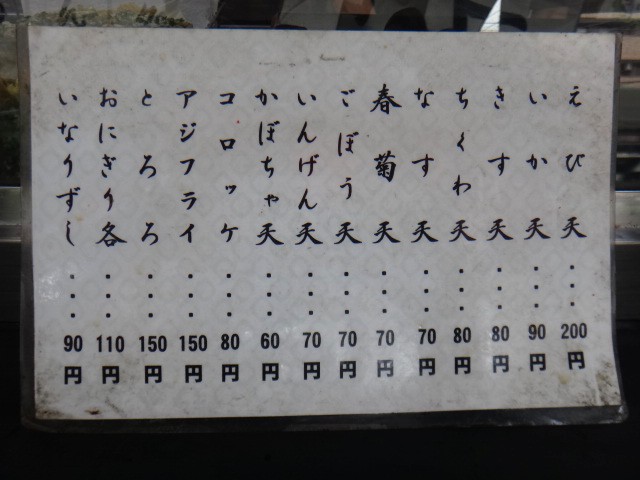 えび天・・・200円
いか天・・・90円
きす天・・・80円
ちくわ天・・・80円
なす天・・・70円
春菊天・・・70円
ごぼう天・・・70円
いんげん天・・・70円
かぼちゃ天・・・60円
コロッケ・・・80円
アジフライ・・・150円
とろろ・・・150円
おにぎり各・・・110円
いなりずし・・・90円